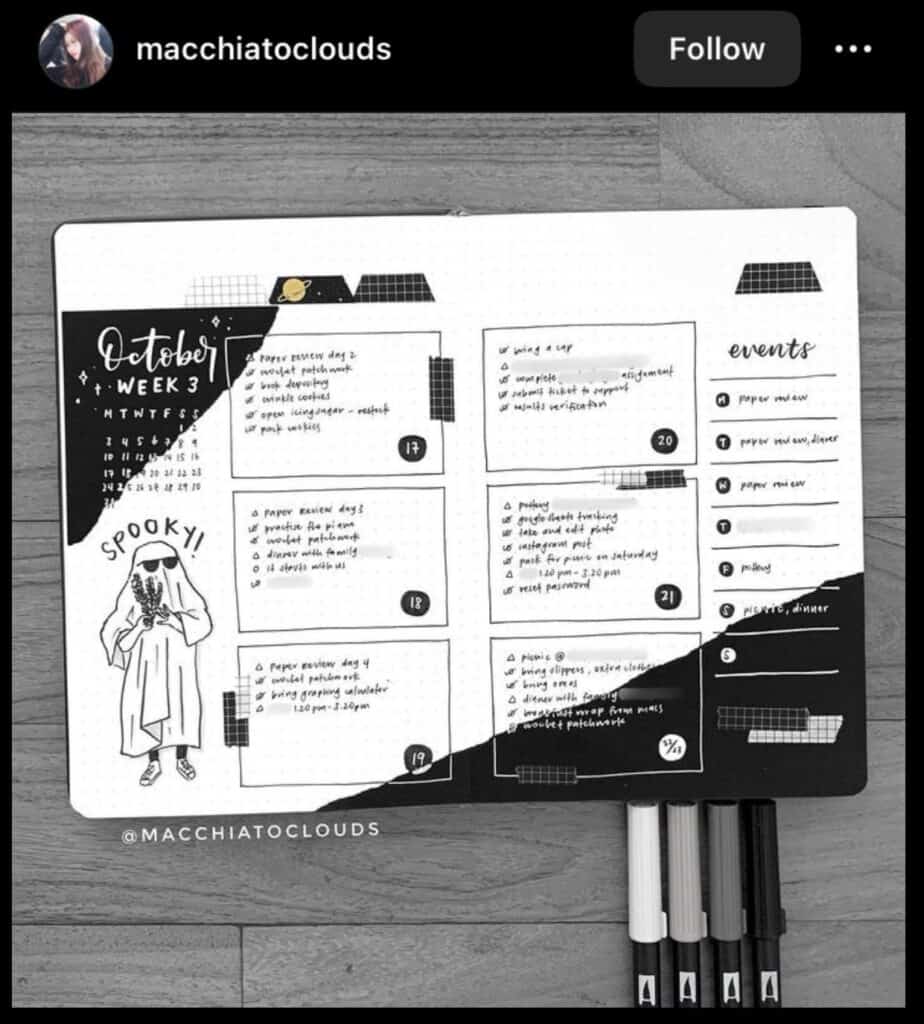 macchiatoclouds
Follow
October
WEEK 3
M T W T F S S
1 2
3 4 5 6 7 8 9
10 11 12 13 14 15 16
17 18 19 20 21 22 23
24 25 26 27 28 29 30
31
SPOOKY!
paper review day 2
crochet patchwork
book depository
crinkle cookies
open icing sugar - restock
pack cookies
17
paper review day 3
practise the piano
crochet patchwork
dinner with family
it starts with us
18
paper review day 4
crochet patchwork
bring graphing calculator
1.20 pm - 3.20pm
19
bring a cap
complete assignment
submit ticket to support
results verification
20
pottery
google sheets tracking
take and edit photo
instagram post
pack for picnic on saturday
1.20 pm - 3.20 pm
reset password
21
picnic @
bring slippers, extra clothes
bring oreos
dinner with family
breakfast wrap from macs
crochet patchwork
22/23
events
M paper review
T paper review, dinner
W paper review
T
F pottery
S picnic, dinner
S
@MACCHIATOCLOUDS